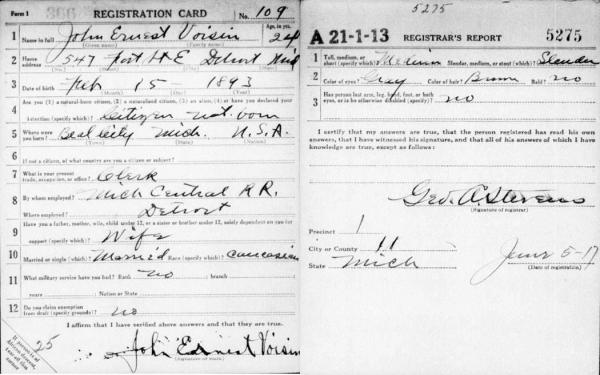 Form 1 366 REGISTRATION CARD No. 109
1 Name in full John Ernest Voisin Age, in yrs. 24
(Given name) (Family name)
2 Home address 547 Fort St E Detroit Mich
(No.) (Street) (City) (State)
3 Date of birth Feb 15 1893
(Month) (Day) (Year)
4 Are you (1) a natural-born citizen, (2) a naturalized citizen, (3) an alien, (4) or have you declared your
intention (specify which)? Citizen nat. born
5 Where were you born? Beal City Mich. U.S.A.
(Town) (State) (Nation)
6 If not a citizen, of what country are you a citizen or subject?
7 What is your present trade, occupation, or office? Clerk
8 By whom employed? Mich Central R R.
Where employed? Detroit
9 Have you a father, mother, wife, child under 12, or a sister or brother under 12, solely dependent on you for
support (specify which)? Wife
10 Married or single (which)? Married Race (specify which)? Caucasian
11 What military service have you had? Rank no branch
years Nation or State
12 Do you claim exemption from draft (specify grounds)? no
I affirm that I have verified above answers and that they are true.
25
John Ernest Voisin
(Signature or mark)
5275
A 21-1-13 REGISTRAR'S REPORT 5275
1 Tall, medium, or short (specify which)? Medium Slender, medium, or stout (which)? Slender
2 Color of eyes? Gray Color of hair? Brown Bald? no
3 Has person lost arm, leg, hand, foot, or both
eyes, or is he otherwise disabled (specify)? no
I certify that my answers are true, that the person registered has read his own
answers, that I have witnessed his signature, and that all of his answers of which I have
knowledge are true, except as follows:
Geo. A Stevens
(Signature of registrar)
Precinct 1
City or County 11
State Mich
June 5-17
(Date of registration)